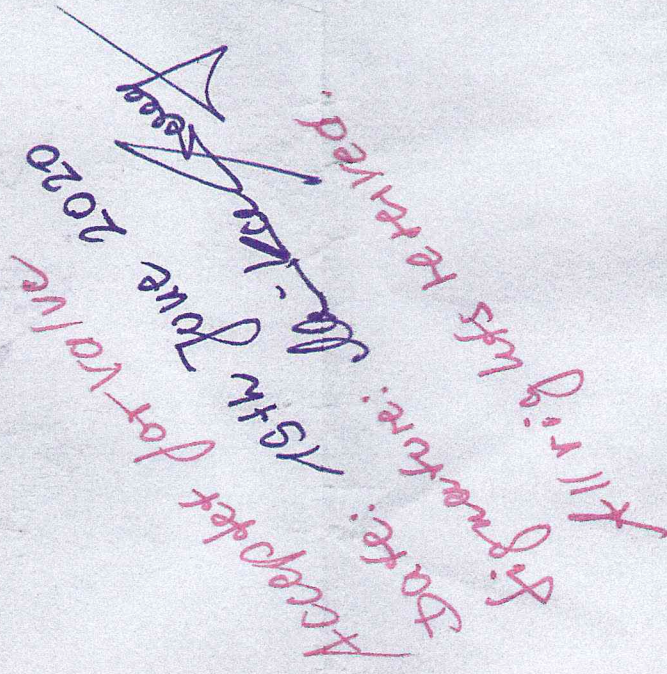 Accepted for value
Date: 15th June 2020
Signature:
All rights reserved.